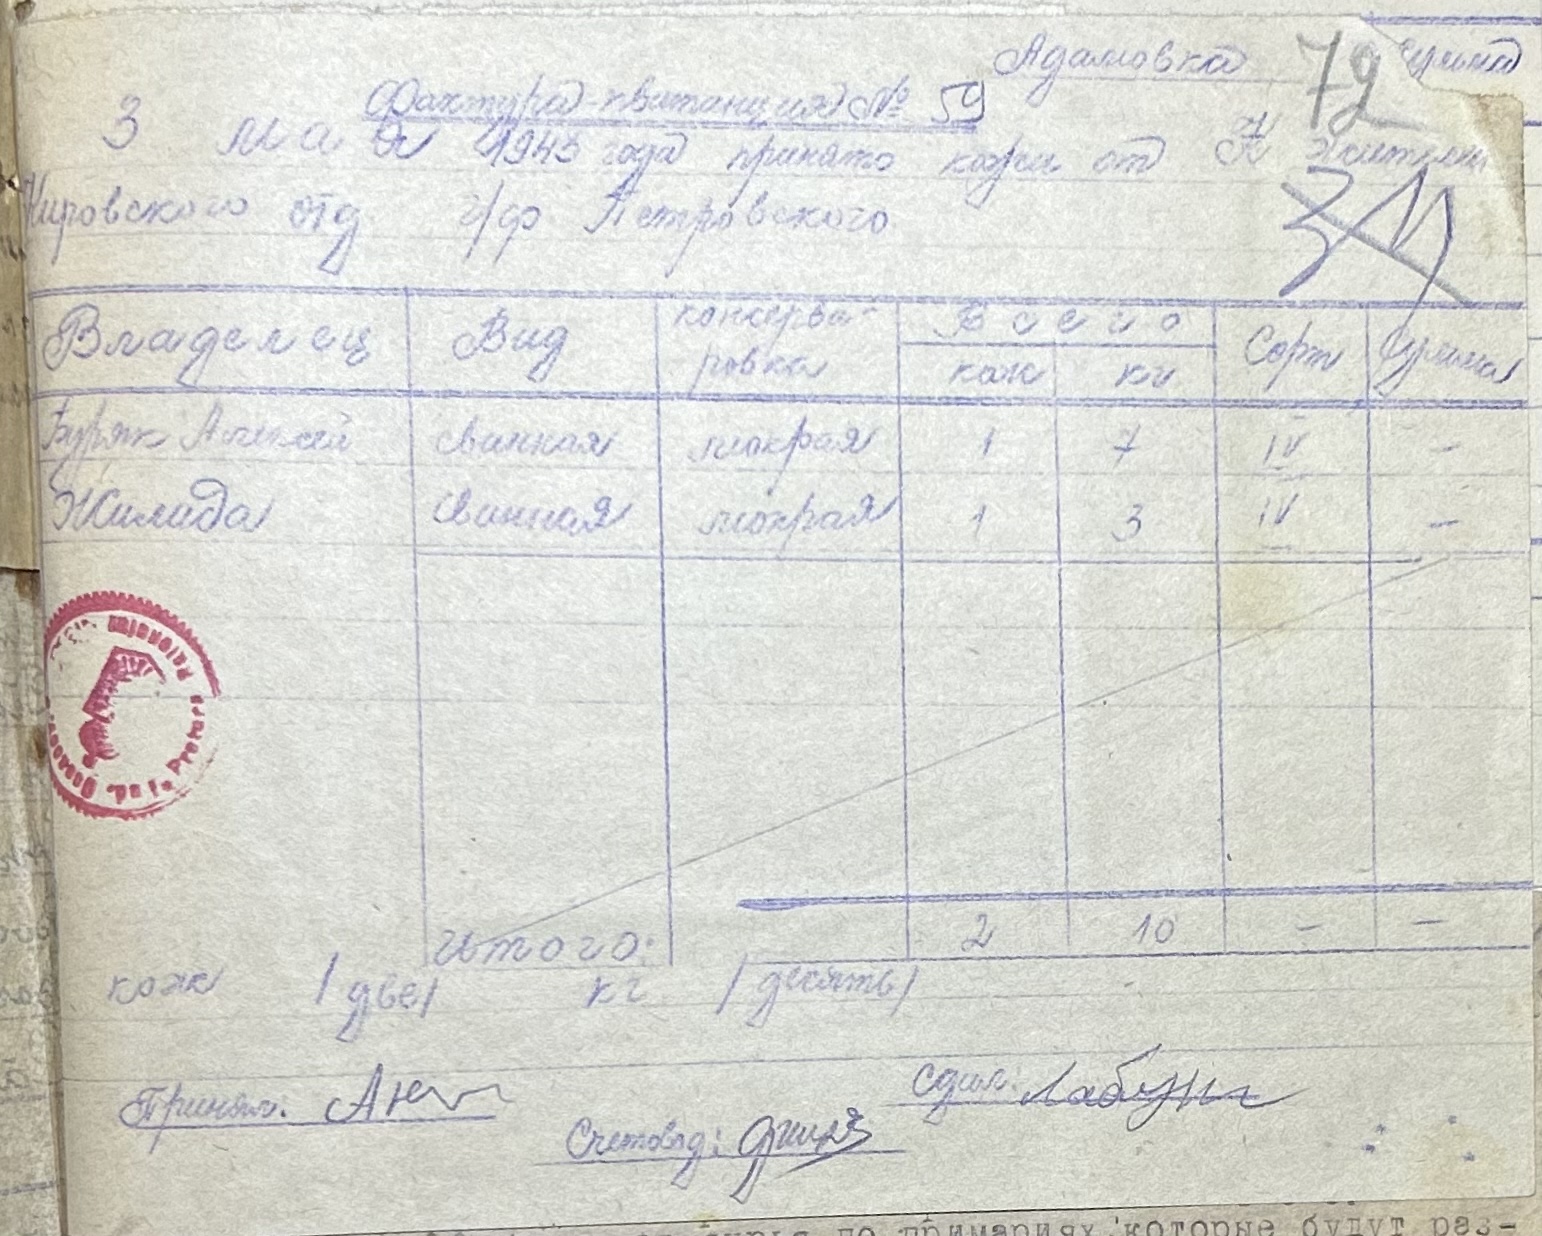 Адамовка
72
сумма
Фактура-квитанция № 59
3 мая 1943 года принято кожи от жители
Кировского отд г/ф Петровского
Владелец Вид консерва- Всего Сорт Сумма
ровка кож кг
Буряк Алексей свинная мокрая 1 7 IV -
Жилида свинная мокрая 1 3 IV -
Итого: 2 10 - -
кож /две/ кг /десять/
Принял:
Сдал:
Счетовод:
по примариях, которые будут раз-